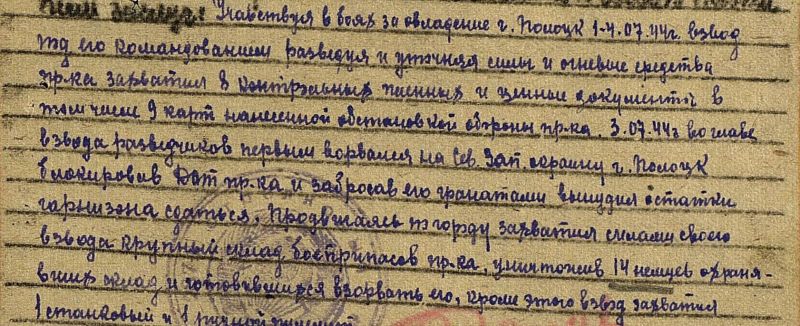 Участвуя в боях за овладение г. Полоцк 1-4.07.44г. взвод
под его командованием разведуя и уточняя силы и огневые средства
пр-ка захватил 8 контрольных пленных и ценные документы в
том числе 9 карт нанесенной обстановкой обороны пр-ка. 3.07.44г во главе
взвода разведчиков первым ворвался на Сев. Зап. окраину г. Полоцк
блокировав Дот пр-ка и забросав его гранатами вынудил остатки
гарнизона сдаться. Продвигаясь по городу захватил силами своего
взвода крупный склад боеприпасов пр-ка, уничтожив 14 немцев охраня-
вших склад и готовившихся взорвать его, кроме этого взвод захватил
1 станковый и 1 ручной